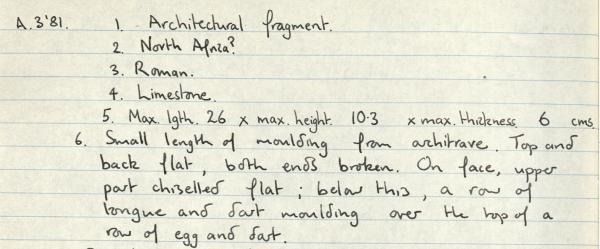 A.3'81. 1. Architectural fragment.
2. North Africa?
3. Roman.
4. Limestone.
5. Max. lgth. 26 x max. height 10.3 x max. thickness 6 cms.
6. Small length of moulding from architrave. Top and
back flat, both ends broken. On face, upper
part chiselled flat; below this, a row of
tongue and dart moulding over the top of a
row of egg and dart.